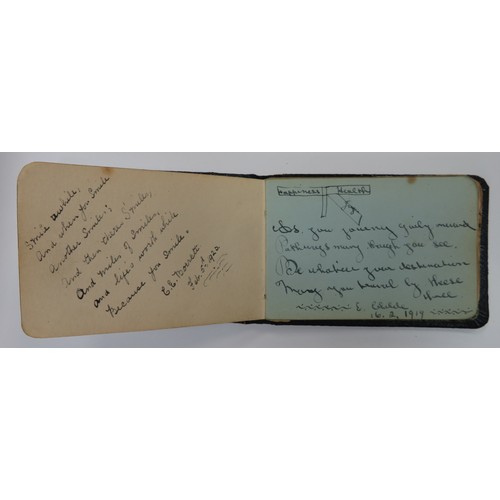 Smile awhile,
And when you Smile
Another Smiles;
And then there's Smiles,
And miles of Smiles,
And life's worth while
Because you Smile.
E.E. 
Feb. 5th 1920
Happiness Health
Joy
As you journey gaily onward
Pathways many though you see.
Be whatever your destination
May you travel by these
E. Childs
16.2.1919